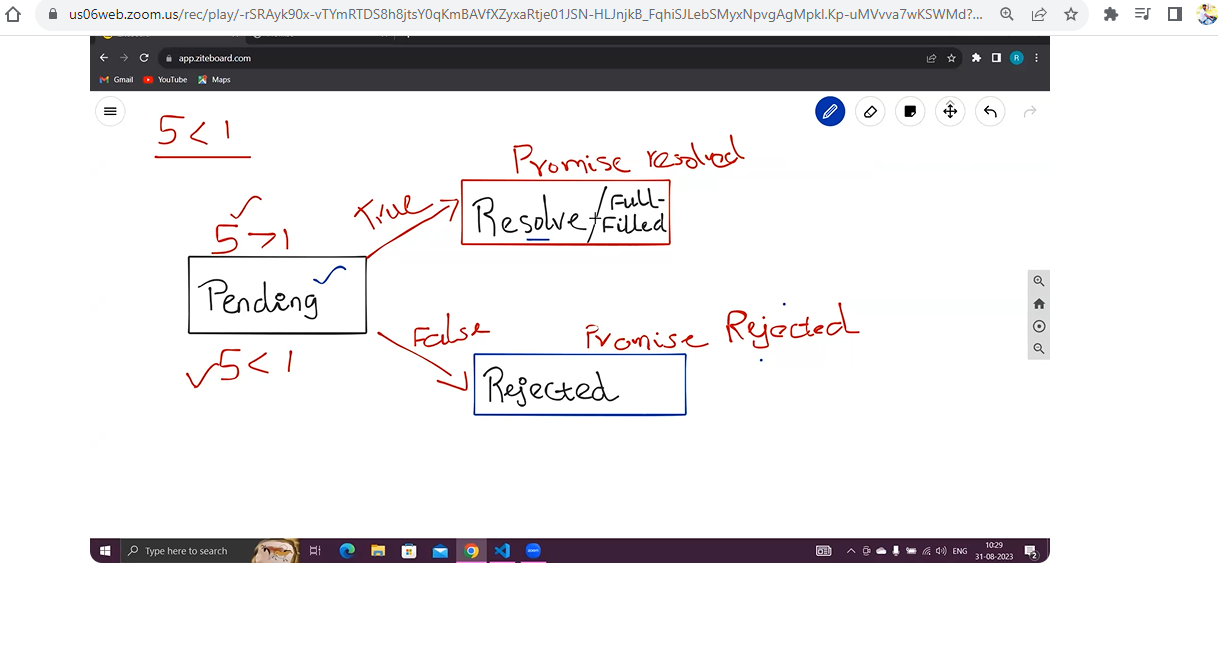 us06web.zoom.us/rec/play/-rSRAyk90x-vTYmRTDS8h8jtsY0qKmBAVfXZyxaRtje01JSN-HLJnjkB_FqhiSJLebSMyxNpvgAgMpkl.Kp-uMVvva7wKSWMd?...
app.ziteboard.com
R
Gmail YouTube Maps
5 < 1
Promise resolved
True
Resolve / Full-
Filled
5 > 1
Pending
False
Promise Rejected
5 < 1
Rejected
Type here to search
ENG
10:29
31-08-2023
2